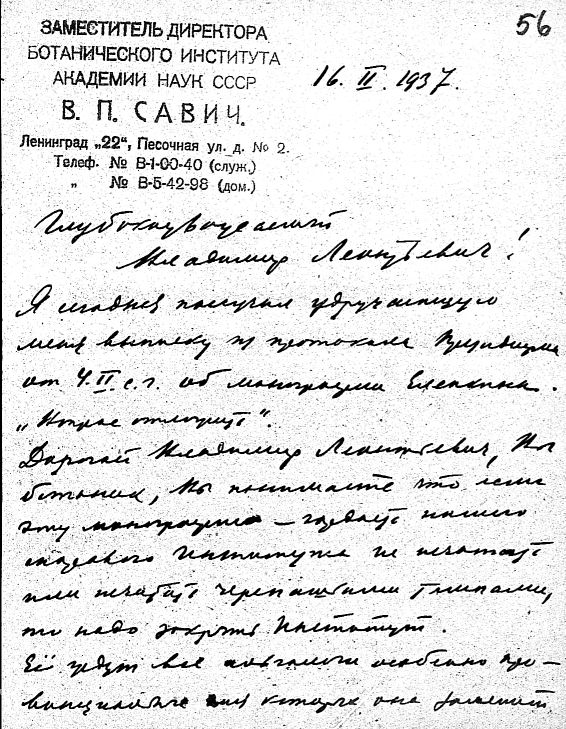 56
ЗАМЕСТИТЕЛЬ ДИРЕКТОРА
БОТАНИЧЕСКОГО ИНСТИТУТА
АКАДЕМИИ НАУК СССР
В. П. САВИЧ.
Ленинград „22“, Песочная ул. д. № 2.
Телеф. № В-1-00-40 (служ.)
„ № В-5-42-98 (дом.)
16. II. 1937.
Глубокоуважаемый
Владимир Леонтьевич!
Я сегодня получил удручающую
меня выписку из протокола Президиума
от 4.II с.г. об монографии Еленкина.
„Вопрос отложить“.
Дорогой Владимир Леонтьевич, Вы
ботаник, Вы понимаете что если
эту монографию – гордость нашего
Института не печатать
или печатать черепашьими темпами,
то надо закрыть Институт.
Её ждут все альгологи особенно про-
винциальные для которых она заменит